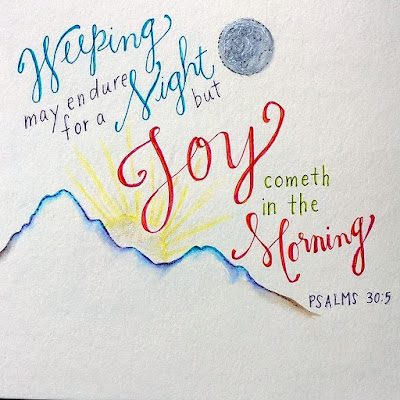 Weeping
may endure
for a Night but
Joy
cometh
in the
Morning
PSALMS 30:5